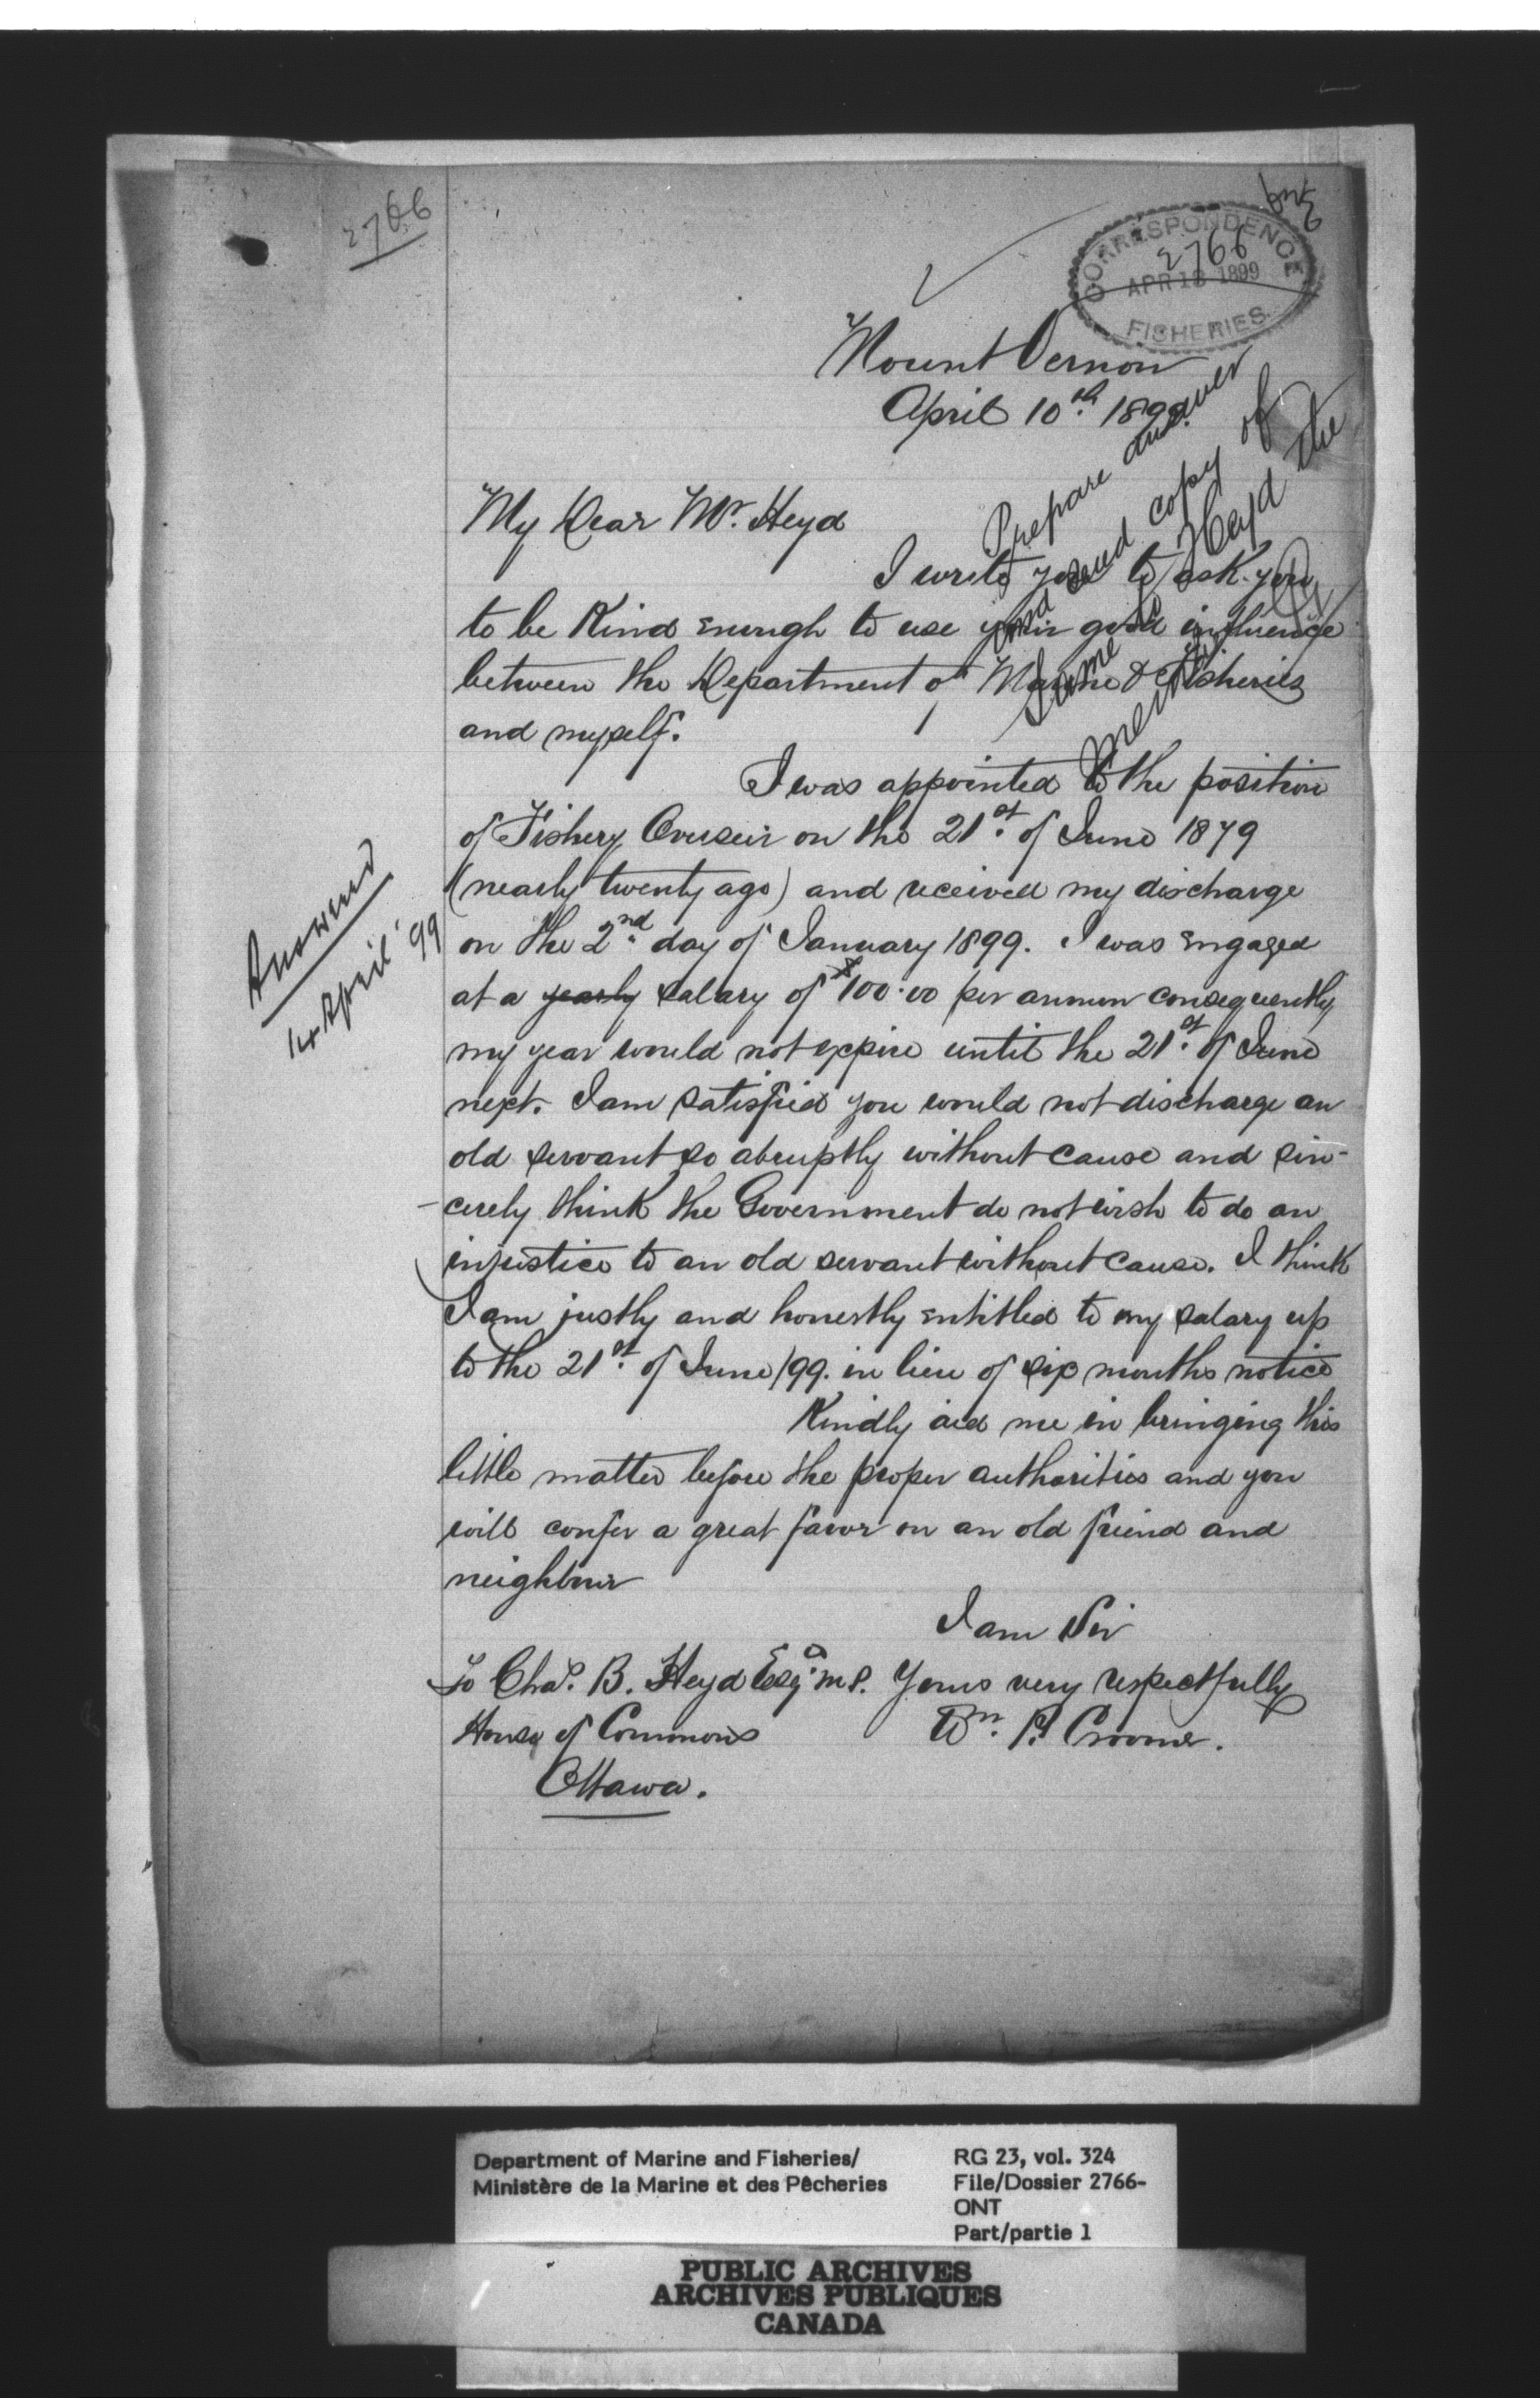 2766
CORRESPONDENCE
2766
APR 13 1899
FISHERIES
Mount Vernon
April 10th. 1899.
Prepare answer
and send copy of
same to Heyd the
member
My Dear Mr. Heyd
I write you to ask you
to be Kind enough to use your good influence
between the Department of Marine & Fisheries
and myself.
I was appointed to the position
of Fishery Overseir on the 21st. of June 1879
(nearly twenty ago) and received my discharge
on the 2nd. day of January 1899. I was engaged
at a yearly salary of $100.00 per annum consequently
my year would not expire until the 21st. of June
next. I am satisfied you would not discharge an
old servant so abruptly without cause and sin-
-cerely think the Government do not wish to do an
injustice to an old servant without cause. I think
I am justly and honestly entitled to my salary up
to the 21st. of June/99. in lieu of six months notice
Kindly aid me in bringing this
little matter before the proper authorities and you
will confer a great favor on an old friend and
neighbour
I am Sir
To Chas. B. Heyd Esqr. M.P. Yours very respectfully
House of Commons Wm. P. Croome.
Ottawa.
Answered
14 April '99
Department of Marine and Fisheries/
Ministère de la Marine et des Pêcheries
RG 23, vol. 324
File/Dossier 2766-
ONT
Part/partie 1
PUBLIC ARCHIVES
ARCHIVES PUBLIQUES
CANADA